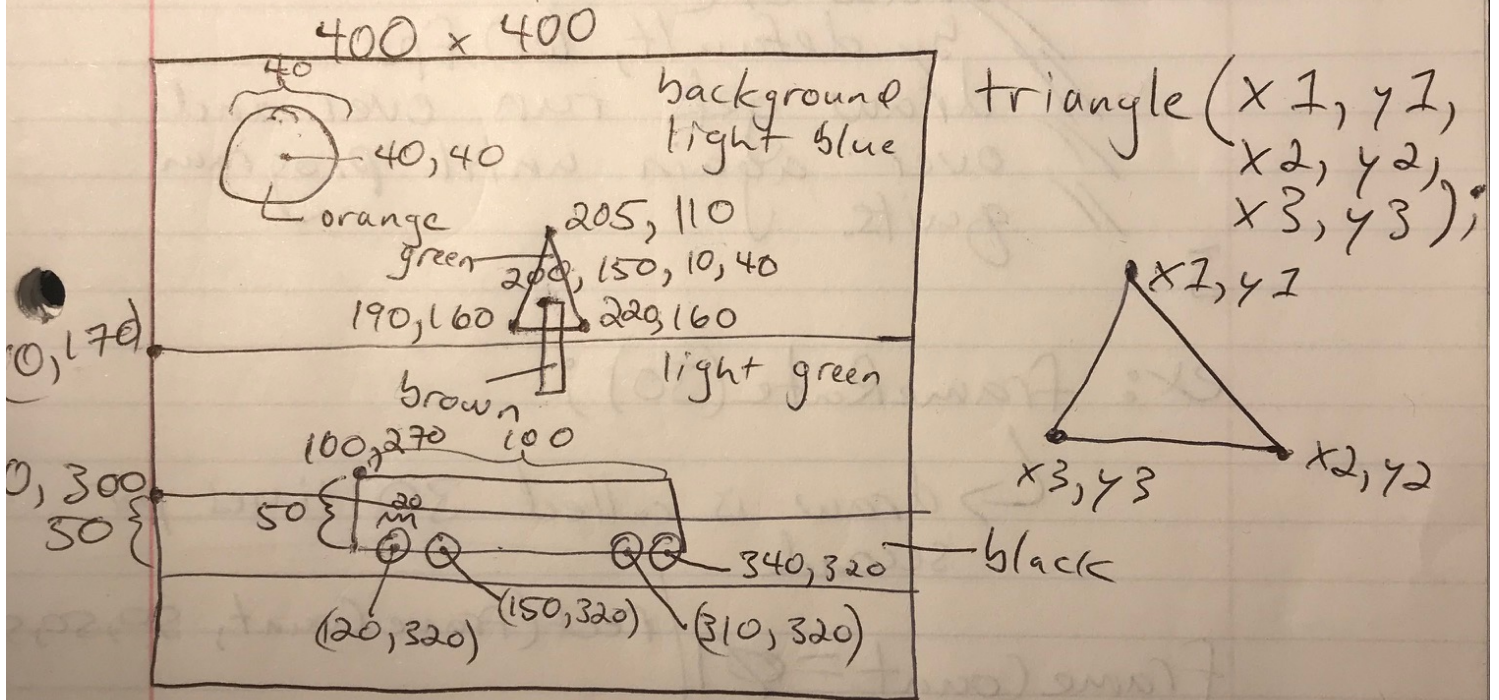 400 x 400
40
background
light blue
40,40
orange
205, 110
green
200, 150, 10, 40
190,160
220,160
0,170)
light green
brown
100,270
100
0,300
50
50
20
340,320
black
(120,320)
(150,320)
(310,320)
triangle(x1, y1,
x2, y2,
x3, y3);
x1,y1
x3,y3
x2,y2